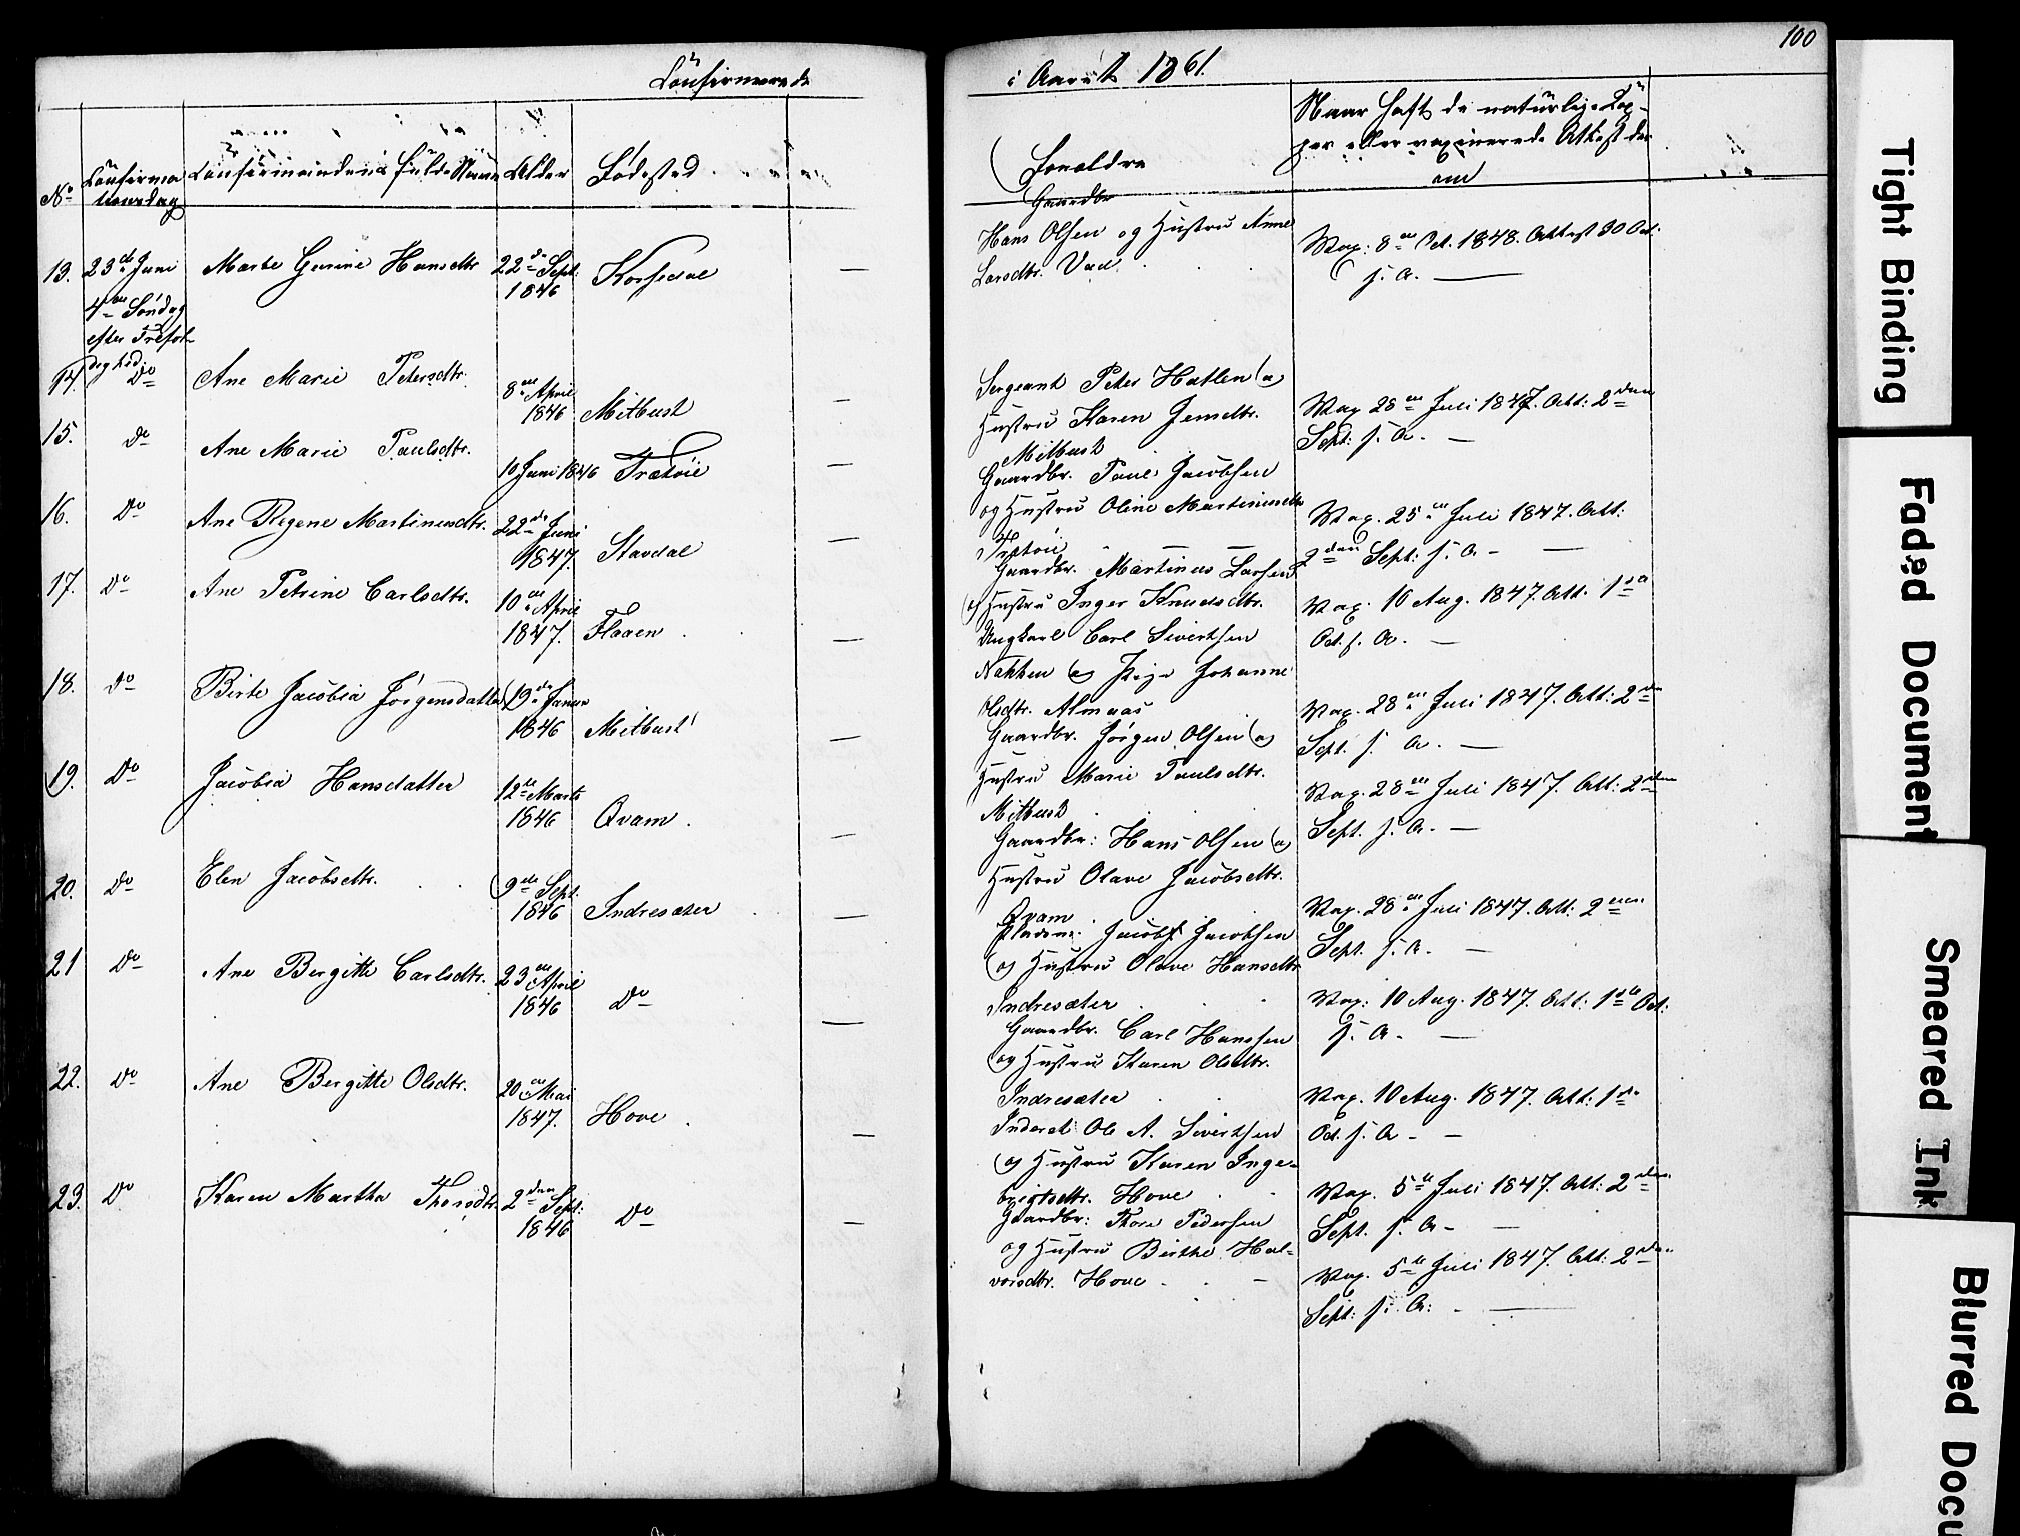 Confirmerede
No
Confirma
tionsdag
Confirmandens fulde Navn
Alder
Fødested
13.
23de Juni
4de Søndag
efter Trefol-
dighed.
Marte Gurine Hansdtr
22de Sept.
1846
Korsedal
14.
Do
Ane Marie Petersdtr.
8de April
1846
Mitbust
15.
Do
Ane Marie Paulsdtr.
10 Juni 1846
Frætøie
16.
Do
Ane Regene Martinusdtr.
22de Juni
1847.
Stavdal
17.
Do
Ane Petrine Carlsdtr.
10de April
1847.
Flaaen
18.
Do
Birte Jacobia Jørgensdatter
19de Januar
1846
Mitbust
19.
Do
Jacobia Hansdatter
12te Marts
1846
Qvam.
20.
Do
Elen Jacobsdtr.
9de Sept.
1846
Indresæter
21
Do
Ane Bergitte Carlsdtr.
23de April
1846
Do
22.
Do
Ane Bergitte Olsdtr.
20de Mai
1847.
Hove
23.
Do
Karen Martha Thorsdtr.
2den Sept:
1846
Do
100
i Aaret 1861.
Forældre
Naar haft de naturlige Kop-
per eller vaxinerede Attest der
om
Gaardbr
Hans Olsen og Hustru Anne
Larsdtr.
Vax: 8de Oct. 1848. Attest 30 Oct:
s. A.
Sergeant Peter Hatlen og
Hustru Karen Jensdtr.
Mitbust
Vax 28de Juli 1847. Att: 2den
Sept: s. A.
Gaardbr. Paul Jacobsen
og Hustru Oline Martinusdtr
Frætøie
Vax. 25de Juli 1847. Att:
2den Sept: s. A.
Gaardbr. Martinus Larsen
og Hustru Inger Knudsdtr.
Vax. 10 Aug. 1847. Att. 1ste
Oct. s. A.
Ungkarl Carl Sivertsen
Nekken og Pige Johanne
Olsdtr. Almaas
Vax. 28de Juli 1847. Att: 2den
Sept. s. A.
Gaardbr. Jørgen Olsen og
Hustru Marie Paulsdtr.
Mitbust
Vax. 28de Juli 1847. Att: 2den
Sept. s. A.
Gaardbr: Hans Olsen og
Hustru Olave Jacobsdtr.
Qvam
Vax. 28de Juli 1847. Att: 2den
Sept. s. A.
Pladsm. Jacob Jacobsen
og Hustru Olave Hansdtr
Indresæter
Vax: 10 Aug. 1847. Att: 1ste Oct:
s. A.
Gaardbr. Carl Hanssen
og Hustru Karen Olsdtr.
Indresæter
Vax. 10 Aug. 1847. Att: 1ste
Oct. s. A.
Inderst Ole A. Sivertsen
og Hustru Karen Inge-
brigtsdtr. Hove
Vax. 5te Juli 1847. Att: 2den
Sept. s. A.
Gaardbr: Thore Pedersen
og Hustru Birthe Hal-
vorsdtr. Hove
Vax. 5te Juli 1847. Att: 2den
Sept: s. A:
Tight Binding
Faded Document
Smeared Ink
Blurred Docu